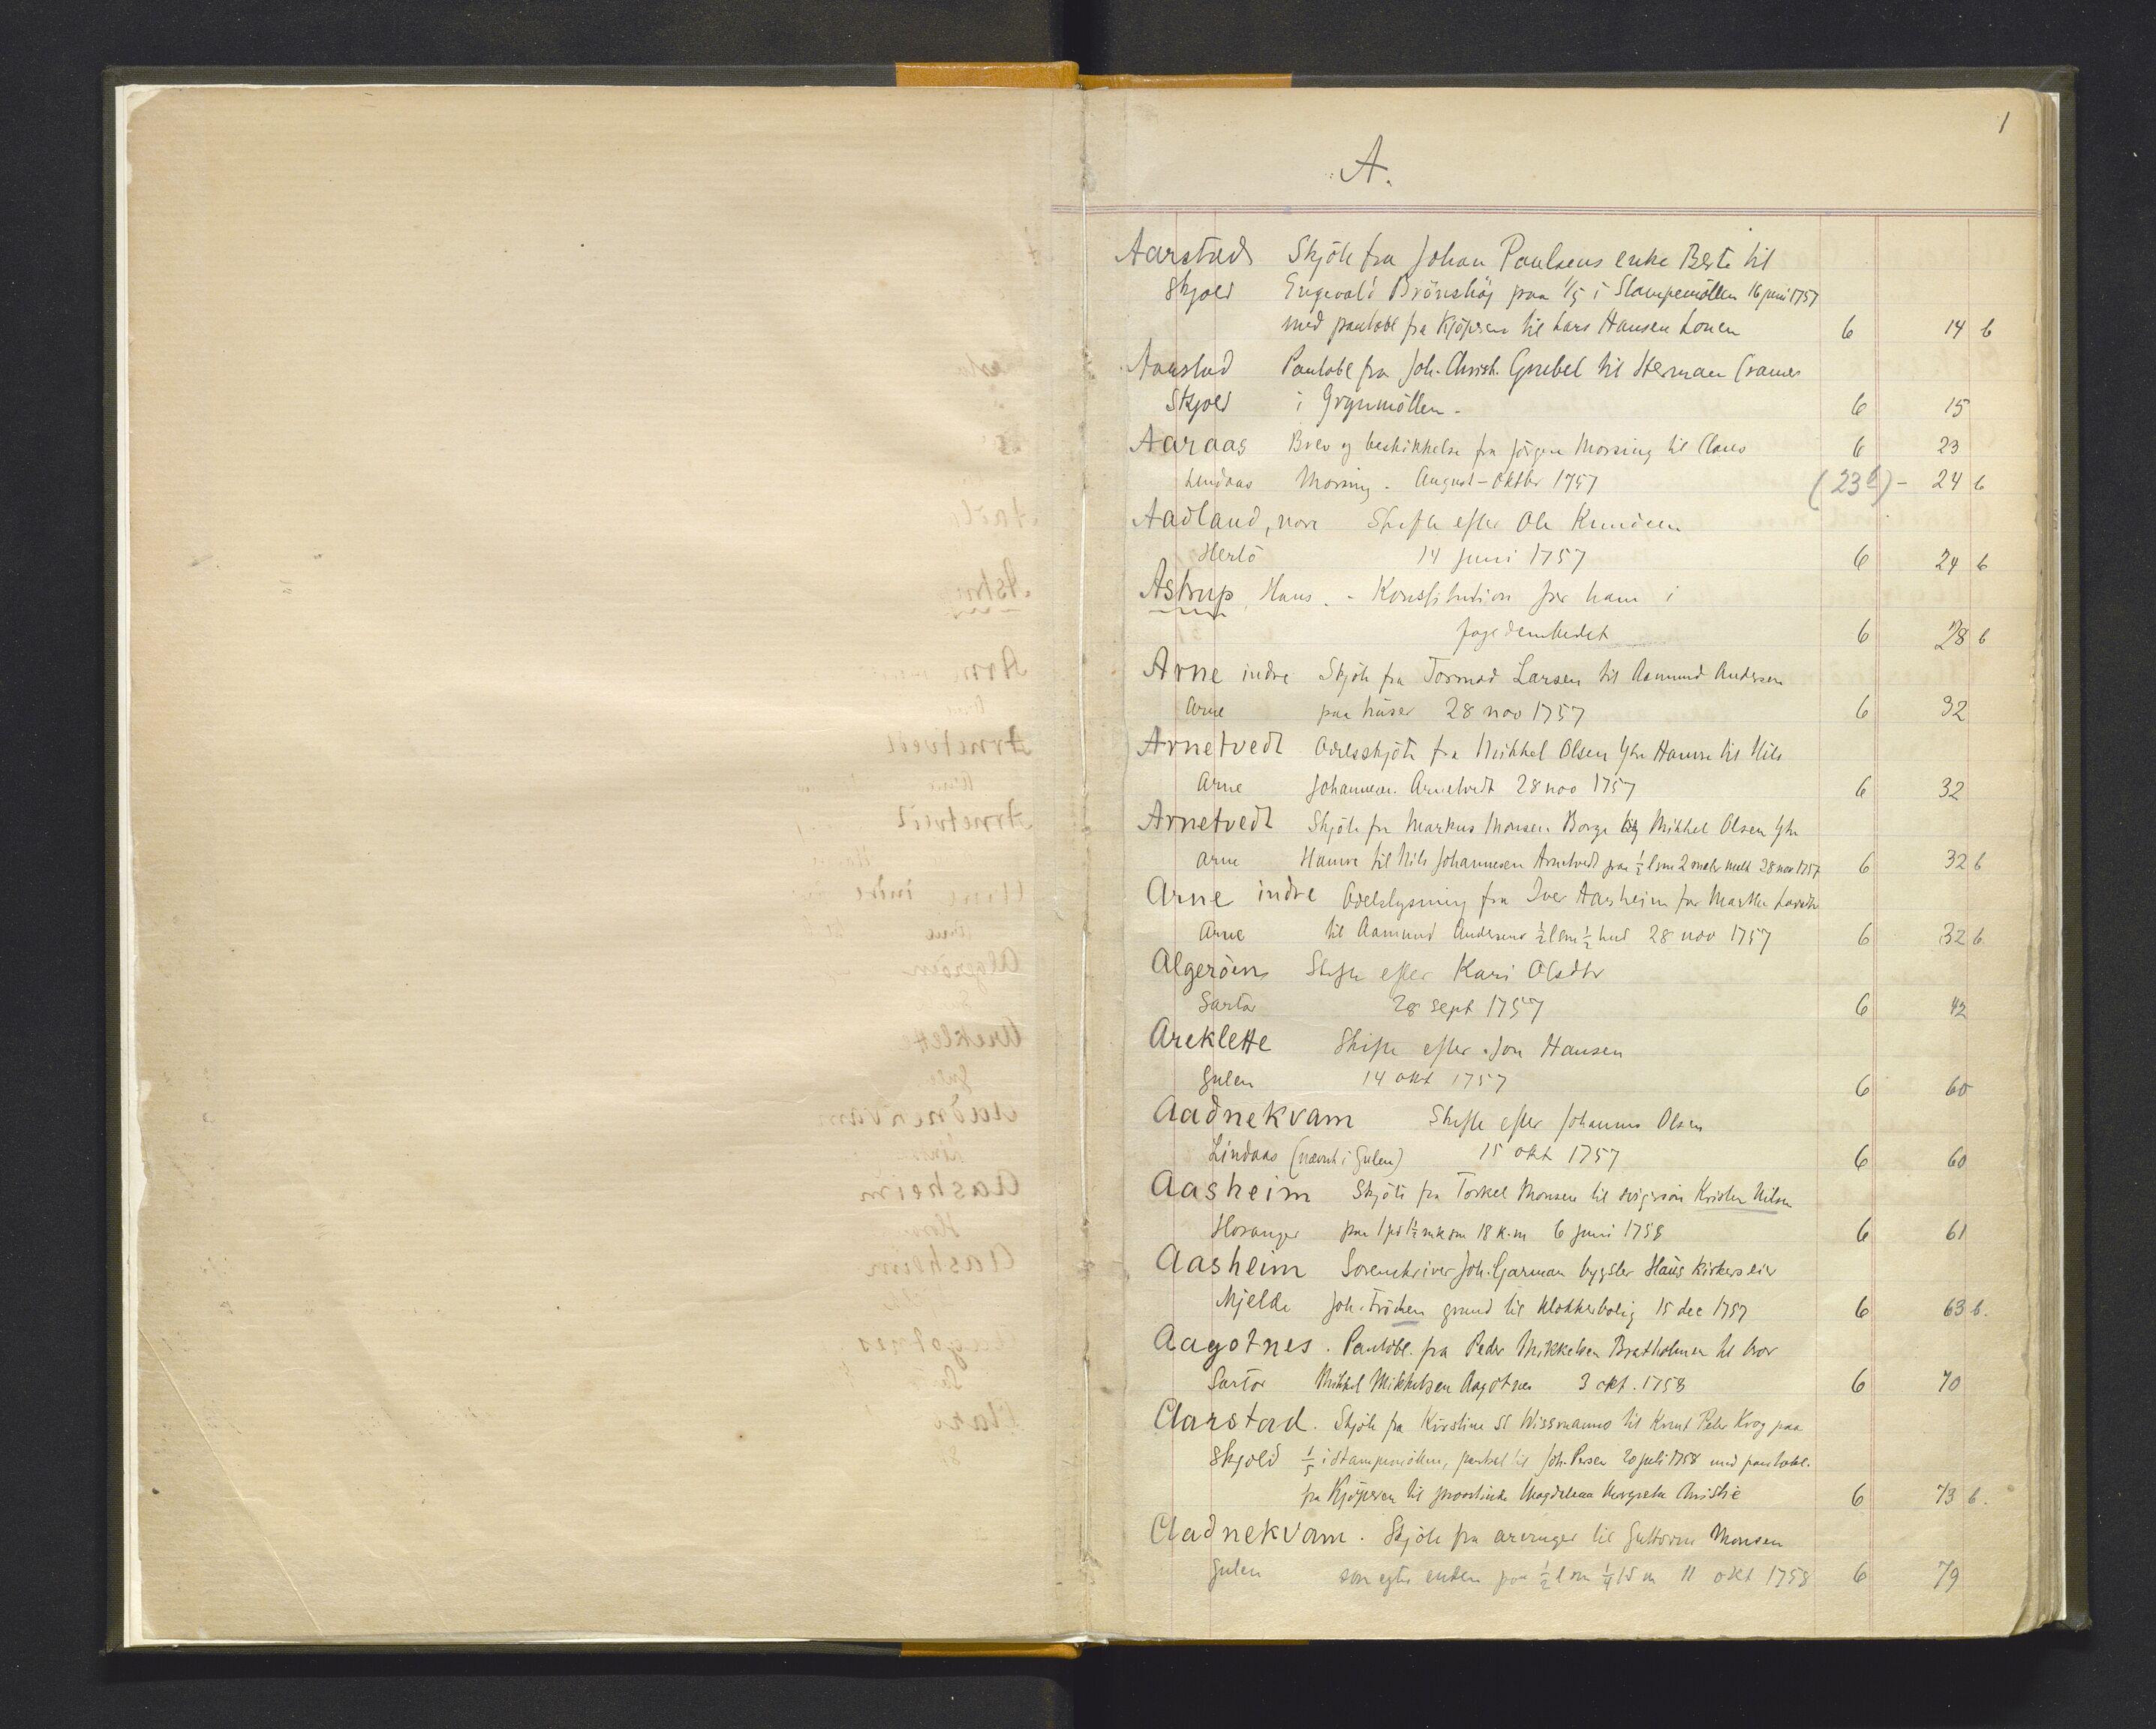 1
A.
Aarstad Skjöte fra Johan Paulsens enke Berte til
Skjold Engevald Brönshöj paa 1/5 i Stampemöllen 16 juni 1757
med pantobl fra Kjöperen til Lars Hansen 6 14 b
Aarstad Pantobl fra Joh. Christ. Grubel til Herman Cramer
Skjold i Grynmöllen - 6 15
Aaraas Brev og beskikkelse fra Jörgen Morsing til Claus 6 23
Lindaas Morsing - August - Oktbr 1757 (23b) - 24 b
Aadland, nore Skifte efter Ole Knudsen
Herlö 14 juni 1757 6 24 b
Astrup, Hans. - Konstitution for ham i
fogedembedet 6 28 b
Arne indre Skjöte fra Tormod Larsen til Aamund Andersen
Arne paa huser 28 nov 1757 6 32
Arnetvedt Odelsskjöte fra Mikkel Olsen Ytre Hamre til Nils
Arne Johannesen Arnetvedt 28 nov 1757 6 32
Arnetvedt Skjöte fra Markus Monsen Borge og Mikkel Olsen Ytr
Arne Hamre til Nils Johannesen Arnetvedt paa 1/2 l sm 2 meler malt 28 nov 1757 6 32 b
Arne indre Odelslysning fra Iver Aasheim for Martha Larsdtr
Arne til Aamund Andersens 1/2 l sm 1/2 hud 28 nov 1757 6 32 b
Algeröen Skifte efter Kari Olsdtr
Sartor 28 sept 1757 6 42
Areklette Skifte efter Jon Hansen
Gulen 14 okt 1757 6 60
Aadnekvam Skifte efter Johannes Olsen
Lindaas (nævnt i Gulen) 15 okt 1757 6 60
Aasheim Skjöte fra Torkel Monsen til svigersön Krister Nilsen
Hosanger paa 1 pd 1 1/2 mk sm 18 k.m 6 juni 1758 6 61
Aasheim Sorenskriver Joh. Garman bygsler Haus kirkers eier
Mjelde Joh. Fröchen grund til klokkerbolig 15 dec 1757 6 63 b.
Aagotnes. Pantobl. fra Peder Mikkelsen Bratholmen til bror
Sartor Mikkel Mikkelsen Aagotnes 3 okt. 1758 6 70
Aarstad. Skjöte fra Kirstine Sl Wissmanns til Knut Peter Krog paa
Skjold 1/5 i Stampemöllen, pantsat til Joh. Persen 20 juli 1758 med pantobl.
fra Kjöperen til provstinde Magdelena Margreta Christie 6 73 b.
Aadnekvam. Skjöte fra arvinger til Guttorm Monsen
Gulen som egter enken paa 1/2 l sm 1/4 15 m 11 okt 1758 6 79